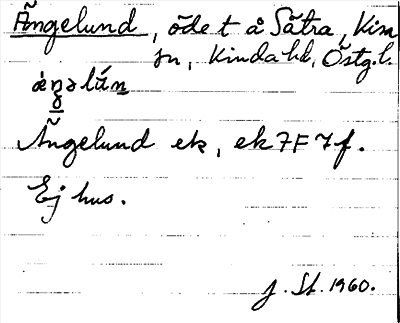 Ängelund, öde t å Sätra, Kisa
sn, Kinda hd, Östg.l.
Ängelund ek, ek 7F7f.
Ej hus.
J. St. 1960.